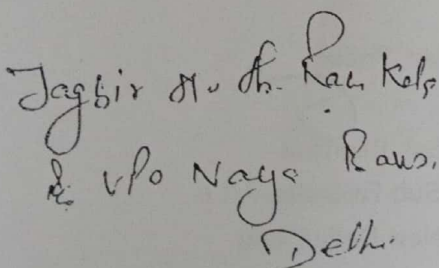 Jagbir S/o Sh. Ram
R/o VPO Naya Bans,
Delhi.